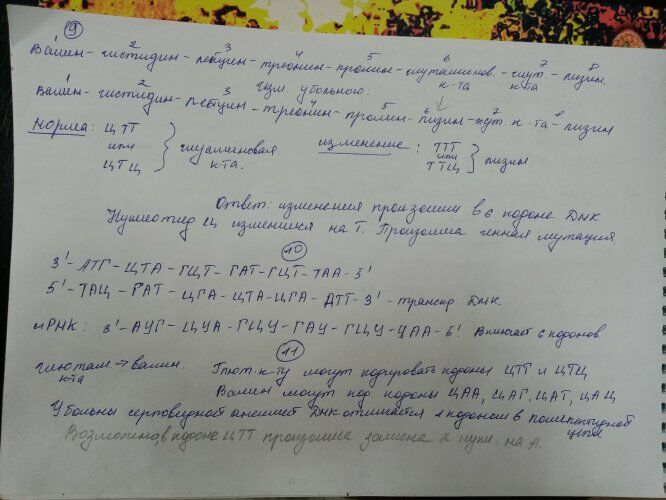 9
1 2 3 4 5 6 7 8
Валин - гистидин - лейцин - треонин - пролин - глутаминов. к-та - глут. к-та - лизин.
Изм. у больного:
1 2 3 4 5 6 7 8
Валин - гистидин - лейцин - треонин - пролин - лизин - глут. к-та - лизин
Норма: ЦТТ или ЦТЦ } глутаминовая к-та.
изменение: ТТТ или ТТЦ } лизин
Ответ: изменения произошли в 6 кодоне ДНК
Нуклеотид Ц изменился на Т. Произошла генная мутация.
10
3'- АТГ - ЦТА - ГЦТ - ГАТ - ГЦТ - ТАА - 5'
5'- ТАЦ - ГАТ - ЦГА - ЦТА - ЦГА - ДТТ - 3' - транскр ДНК
иРНК: 3'- АУГ - ЦУА - ГЦУ - ГАУ - ГЦУ - УАА - 5'. Включает 6 кодонов.
11
глютам. к-та → валин.
Глют. к-ту могут кодировать кодоны ЦТТ и ЦТЦ
Валин могут код кодоны ЦАА, ЦАГ, ЦАТ, ЦАЦ
У больных серповидной анемией ДНК отличается 1 кодоном в полипептидной цепи
Возможно, в кодоне ЦТТ произошла замена 2 нукл. на А.